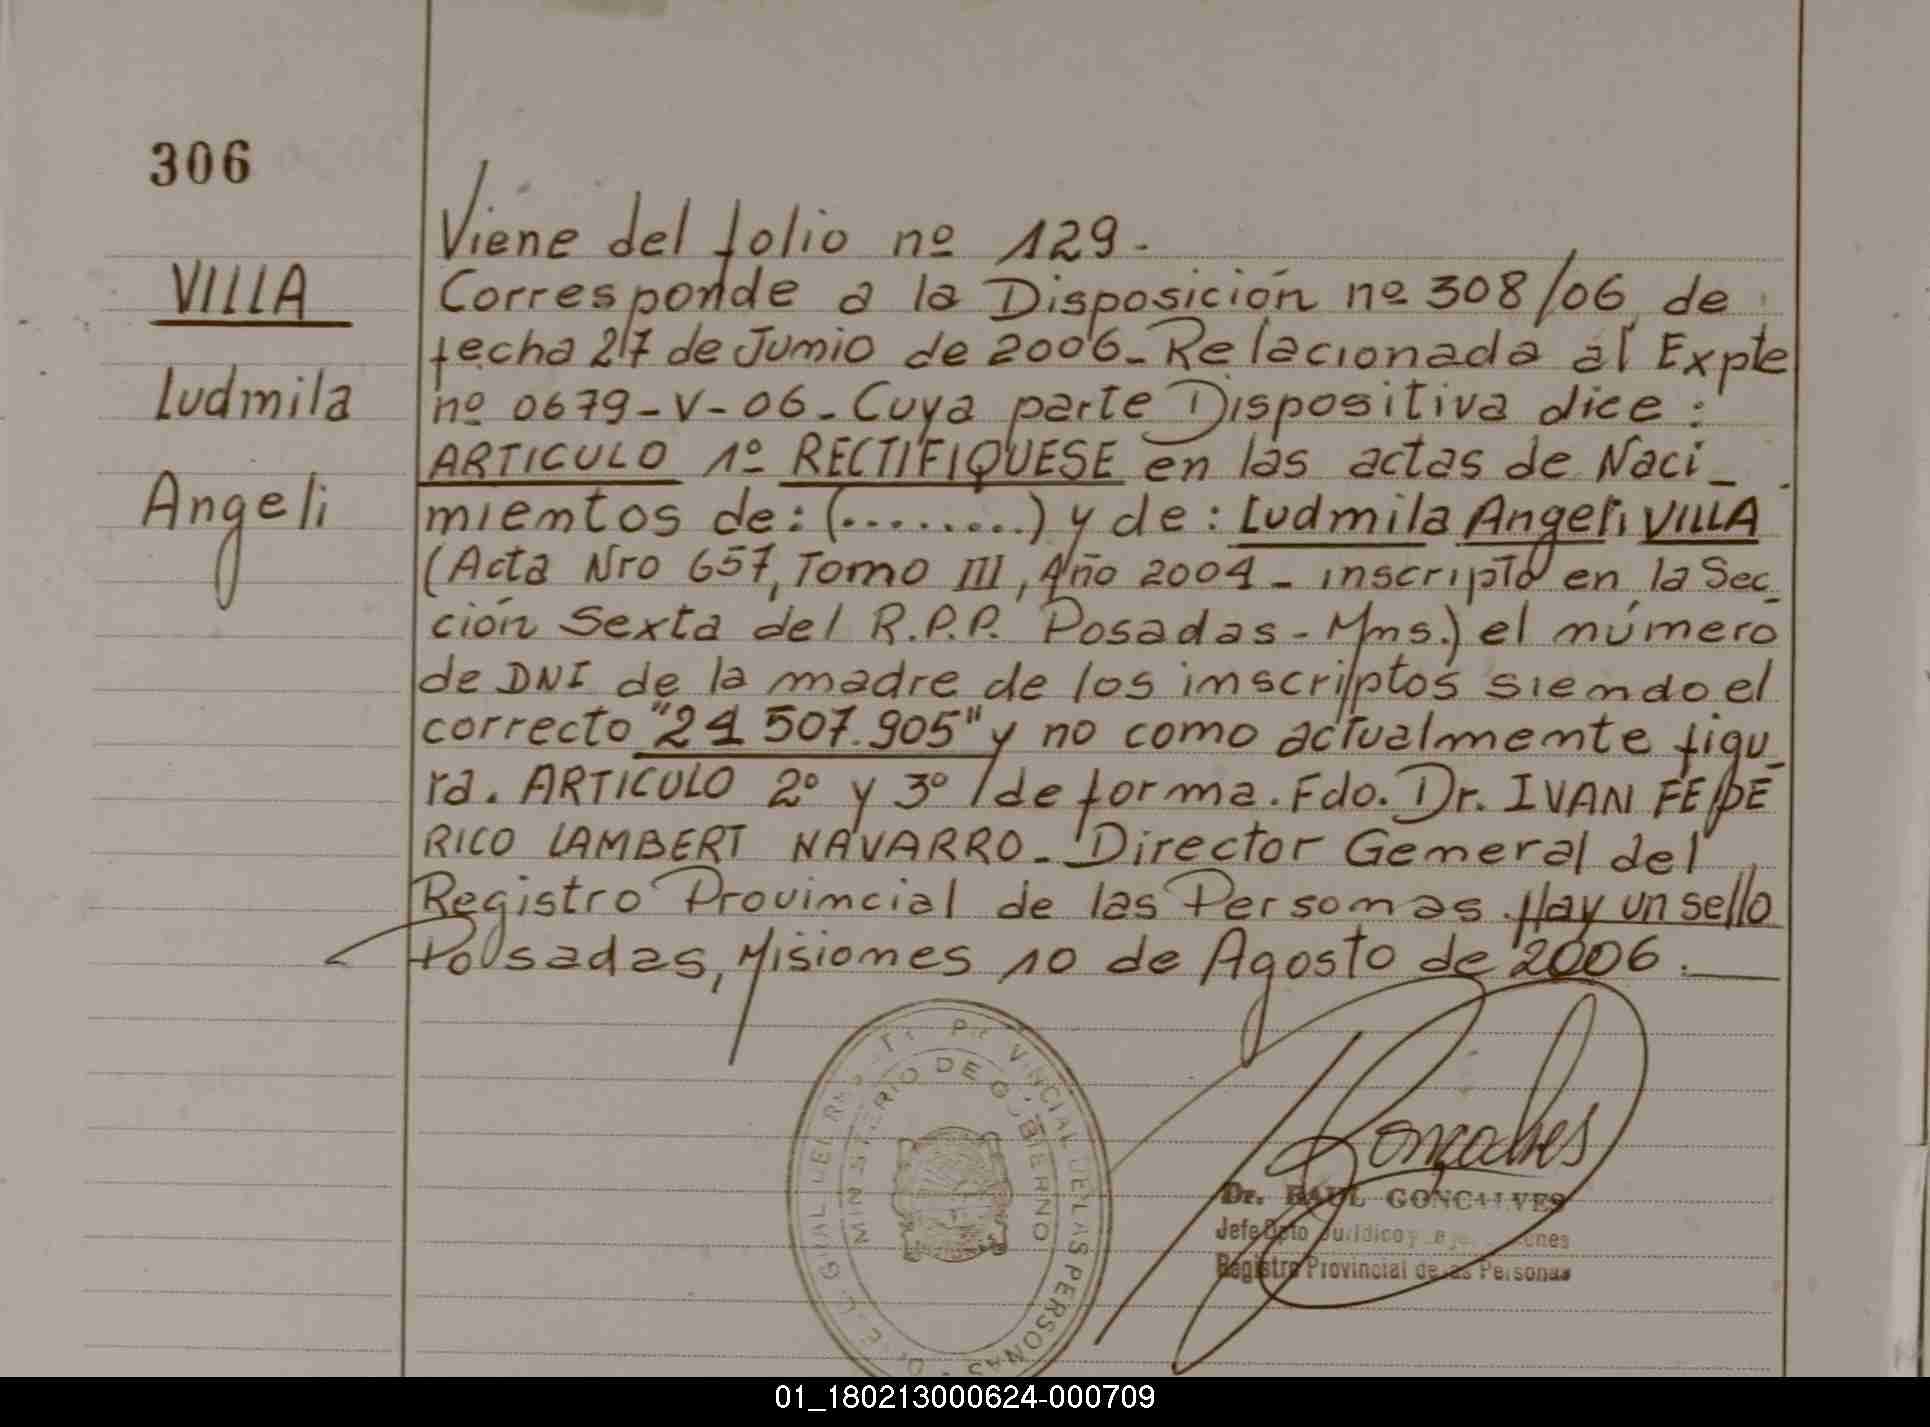 306
VILLA
Ludmila
Angeli
Viene del folio nº 129.
Corresponde a la Disposición nº 308/06, de
fecha 27 de Junio de 2006_Relacionada al Expte
nº 0679-V-06_Cuya parte Dispositiva dice:
ARTICULO 1º RECTIFIQUESE en las actas de Naci_
mientos de: (........) y de: Ludmila Angeli VILLA
(Acta Nro 657, Tomo III, Año 2004_inscripta en la Sec_
ción Sexta del R.P.P. Posadas-Mns.) el número
de DNI de la madre de los inscriptos siendo el
correcto "21 507.905" y no como actualmente figu_
ra. ARTICULO 2º y 3º de forma. Fdo. Dr. IVAN FEDE
RICO LAMBERT NAVARRO_Director General del
Registro Provincial de las Personas. Hay un sello
Posadas, Misiones 10 de Agosto de 2006.
MINISTERIO DE GOBIERNO
PROVINCIAL DE LAS PERSONAS
Gonçalves
Dr. RAUL GONCALVES
Jefe Dpto Jurídico y
Registro Provincial de las Personas
01_180213000624-000709